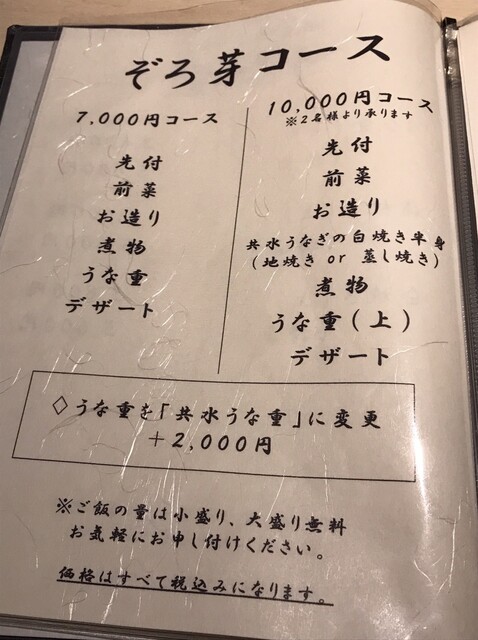 ぞろ芽コース
7,000円コース
先付
前菜
お造り
煮物
うな重
デザート
10,000円コース
※2名様より承ります
先付
前菜
お造り
共水うなぎの白焼き半身
(地焼き or 蒸し焼き)
煮物
うな重(上)
デザート
◇うな重を「共水うな重」に変更
+2,000円
※ご飯の量は小盛り、大盛り無料
お気軽にお申し付けください。
価格はすべて税込みになります。